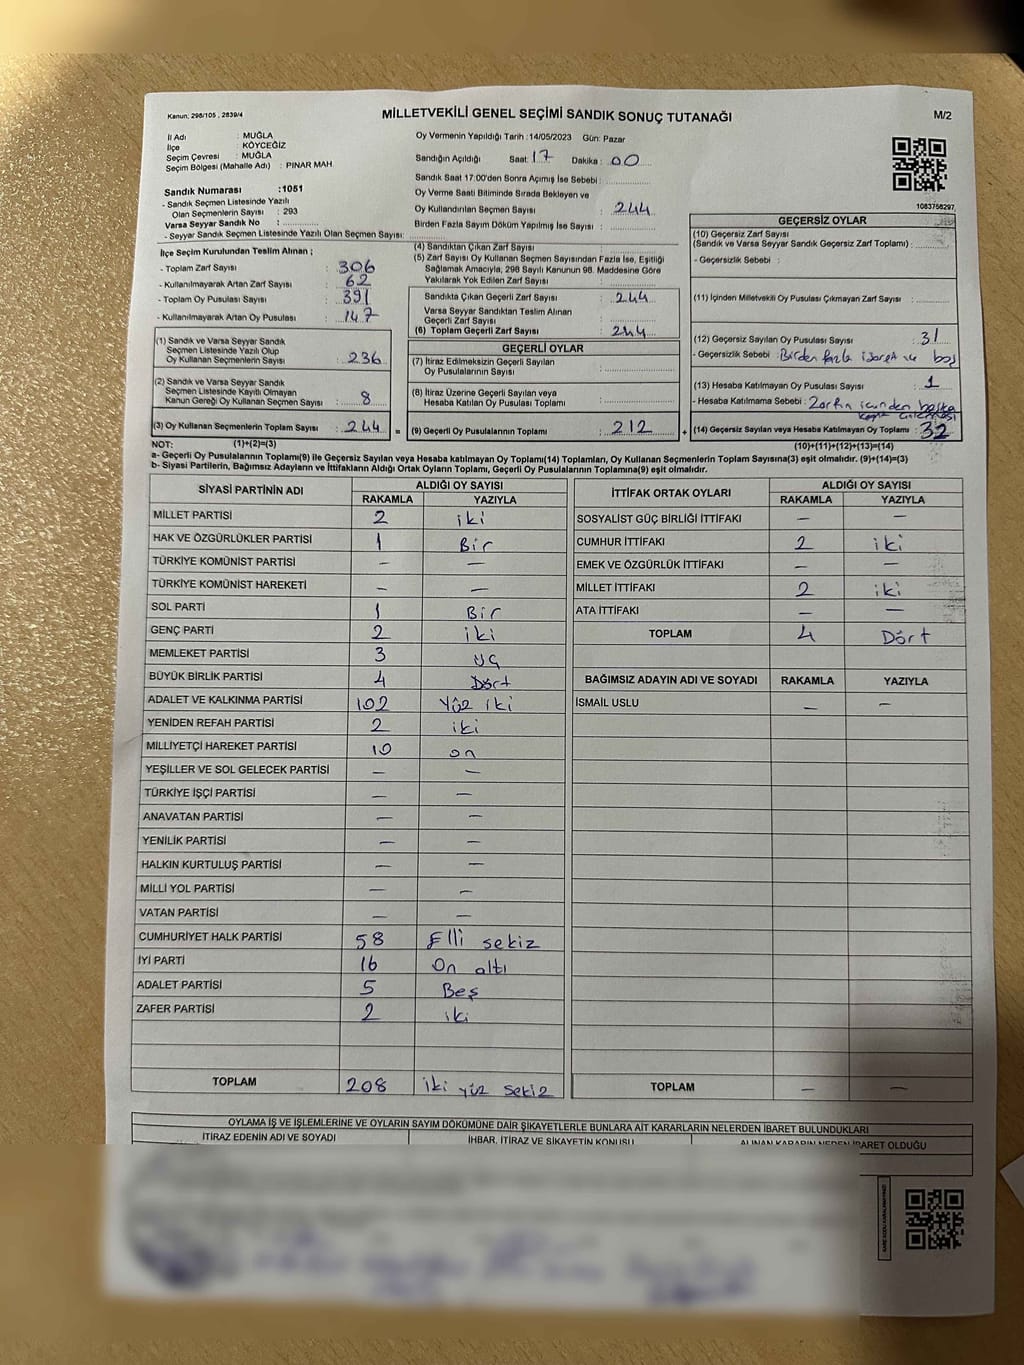 Kanun: 298/105 , 2839/4
MİLLETVEKİLİ GENEL SEÇİMİ SANDIK SONUÇ TUTANAĞI
M/2
İl Adı : MUĞLA
İlçe : KÖYCEĞİZ
Seçim Çevresi : MUĞLA
Seçim Bölgesi (Mahalle Adı) : PINAR MAH.
Sandık Numarası :1051
- Sandık Seçmen Listesinde Yazılı
Olan Seçmenlerin Sayısı : 293
Varsa Seyyar Sandık No :
- Seyyar Sandık Seçmen Listesinde Yazılı Olan Seçmen Sayısı:
Oy Vermenin Yapıldığı Tarih :14/05/2023 Gün: Pazar
Sandığın Açıldığı Saat: 17 Dakika : 00
Sandık Saat 17:00'den Sonra Açımış İse Sebebi :
Oy Verme Saati Bitiminde Sırada Bekleyen ve
Oy Kullandırılan Seçmen Sayısı : 244
Birden Fazla Sayım Döküm Yapılmış İse Sayısı :
1083756297
İlçe Seçim Kurulundan Teslim Alınan ;
- Toplam Zarf Sayısı : 306
- Kullanılmayarak Artan Zarf Sayısı : 62
- Toplam Oy Pusulası Sayısı : 391
- Kullanılmayarak Artan Oy Pusulası : 147
(1) Sandık ve Varsa Seyyar Sandık
Seçmen Listesinde Yazılı Olup
Oy Kullanan Seçmenlerin Sayısı : 236
(2) Sandık ve Varsa Seyyar Sandık
Seçmen Listesinde Kayıtlı Olmayan
Kanun Gereği Oy Kullanan Seçmen Sayısı : 8
(3) Oy Kullanan Seçmenlerin Toplam Sayısı : 244 =
(4) Sandıktan Çıkan Zarf Sayısı :
(5) Zarf Sayısı Oy Kullanan Seçmen Sayısından Fazla İse, Eşitliği
Sağlamak Amacıyla, 298 Sayılı Kanunun 98. Maddesine Göre
Yakılarak Yok Edilen Zarf Sayısı :
Sandıkta Çıkan Geçerli Zarf Sayısı : 244
Varsa Seyyar Sandıktan Teslim Alınan
Geçerli Zarf Sayısı :
(6) Toplam Geçerli Zarf Sayısı : 244
GEÇERLİ OYLAR
(7) İtiraz Edilmeksizin Geçerli Sayılan
Oy Pusulalarının Sayısı :
(8) İtiraz Üzerine Geçerli Sayılan veya
Hesaba Katılan Oy Pusulası Toplamı :
(9) Geçerli Oy Pusulalarının Toplamı : 212 +
GEÇERSİZ OYLAR
(10) Geçersiz Zarf Sayısı
(Sandık ve Varsa Seyyar Sandık Geçersiz Zarf Toplamı) :
- Geçersizlik Sebebi :
(11) İçinden Milletvekili Oy Pusulası Çıkmayan Zarf Sayısı :
(12) Geçersiz Sayılan Oy Pusulası Sayısı : 31
- Geçersizlik Sebebi : Birden fazla işaret ve boş
(13) Hesaba Katılmayan Oy Pusulası Sayısı : 1
- Hesaba Katılmama Sebebi : Zarfın içinden başka
(14) Geçersiz Sayılan veya Hesaba Katılmayan Oy Toplamı : 32
NOT: (1)+(2)=(3)
(10)+(11)+(12)+(13)=(14)
a- Geçerli Oy Pusulalarının Toplamı(9) ile Geçersiz Sayılan veya Hesaba katılmayan Oy Toplamı(14) Toplamları, Oy Kullanan Seçmenlerin Toplam Sayısına(3) eşit olmalıdır. (9)+(14)=(3)
b- Siyasi Partilerin, Bağımsız Adayların ve İttifakların Aldığı Ortak Oyların Toplamı, Geçerli Oy Pusulalarının Toplamına(9) eşit olmalıdır.
SİYASİ PARTİNİN ADI ALDIĞI OY SAYISI
RAKAMLA YAZIYLA
MİLLET PARTİSİ 2 iki
HAK VE ÖZGÜRLÜKLER PARTİSİ 1 Bir
TÜRKİYE KOMÜNİST PARTİSİ — —
TÜRKİYE KOMÜNİST HAREKETİ — —
SOL PARTİ 1 Bir
GENÇ PARTİ 2 iki
MEMLEKET PARTİSİ 3 üç
BÜYÜK BİRLİK PARTİSİ 4 Dört
ADALET VE KALKINMA PARTİSİ 102 Yüz iki
YENİDEN REFAH PARTİSİ 2 iki
MİLLİYETÇİ HAREKET PARTİSİ 10 on
YEŞİLLER VE SOL GELECEK PARTİSİ — —
TÜRKİYE İŞÇİ PARTİSİ — —
ANAVATAN PARTİSİ — —
YENİLİK PARTİSİ — —
HALKIN KURTULUŞ PARTİSİ — —
MİLLİ YOL PARTİSİ — —
VATAN PARTİSİ — —
CUMHURİYET HALK PARTİSİ 58 Elli sekiz
İYİ PARTİ 16 On altı
ADALET PARTİSİ 5 Beş
ZAFER PARTİSİ 2 iki
TOPLAM 208 iki yüz sekiz
İTTİFAK ORTAK OYLARI ALDIĞI OY SAYISI
RAKAMLA YAZIYLA
SOSYALİST GÜÇ BİRLİĞİ İTTİFAKI — —
CUMHUR İTTİFAKI 2 iki
EMEK VE ÖZGÜRLÜK İTTİFAKI — —
MİLLET İTTİFAKI 2 iki
ATA İTTİFAKI — —
TOPLAM 4 Dört
BAĞIMSIZ ADAYIN ADI VE SOYADI RAKAMLA YAZIYLA
İSMAİL USLU — —
TOPLAM — —
OYLAMA İŞ VE İŞLEMLERİNE VE OYLARIN SAYIM DÖKÜMÜNE DAİR ŞİKAYETLERLE BUNLARA AİT KARARLARIN NELERDEN İBARET BULUNDUKLARI
İTİRAZ EDENİN ADI VE SOYADI İHBAR, İTİRAZ VE ŞİKAYETİN KONUSU ALINAN KARARIN NEDEN İBARET OLDUĞU